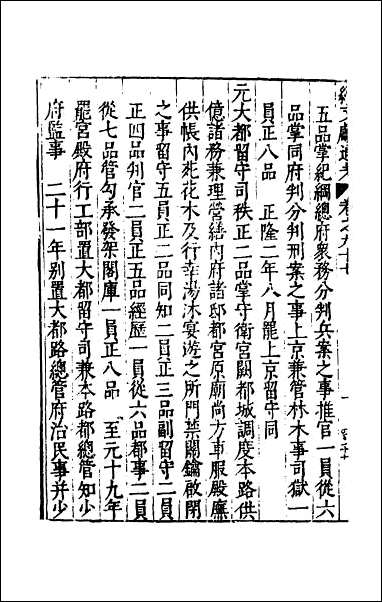 續文獻通考 卷之九十七
五品掌紀綱總府衆務分判兵案之事推官一員從六
品掌同府判分判刑案之事上京兼管林木事司獄一
員正八品 正隆二年八月罷上京留守同
元大都留守司秩正二品掌守衛宮闕都城調度本路供
億諸務兼理營繕內府諸邸都宮原廟尚方車服殿廡
供帳內苑花木及行幸湯沐宴遊之所門禁關鑰啟閉
之事留守五員正二品同知二員正三品副留守二員
正四品判官二員正五品經歷一員從六品都事二員
從七品管勾承發架閣庫一員正八品 至元十九年
罷宮殿府行工部置大都留守司兼本路都總管知少
府監事 二十一年別置大都路總管府治民事并少